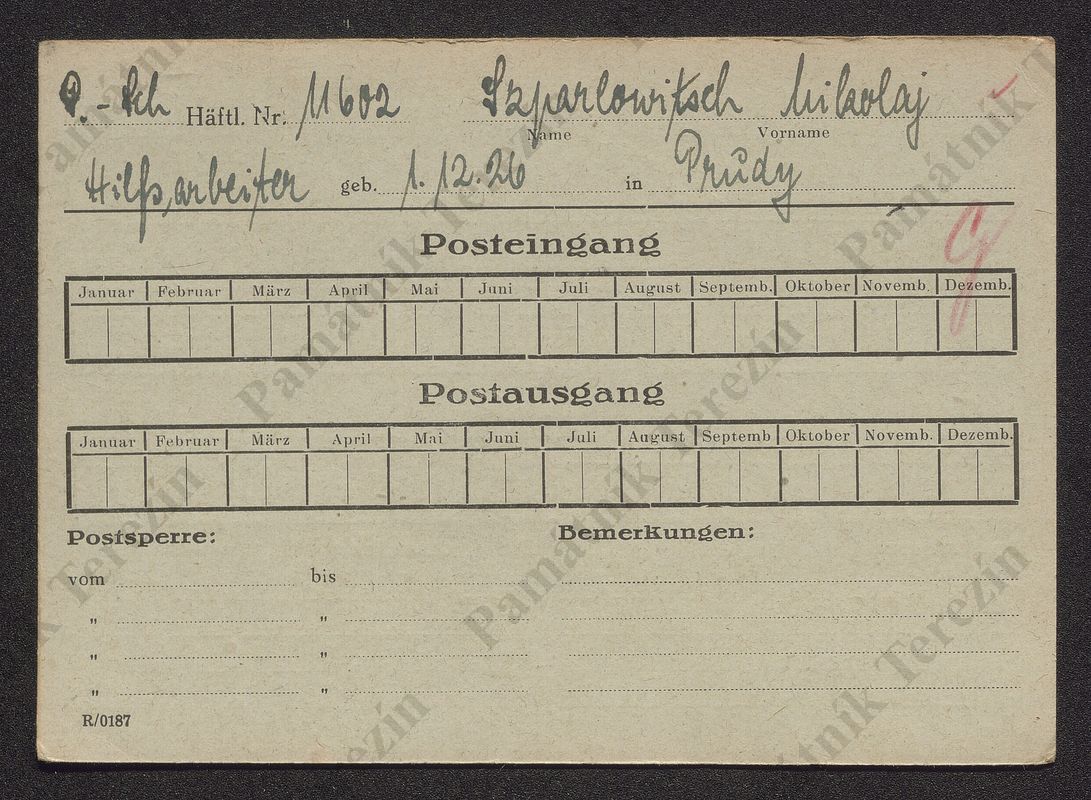 P. - Sch Häftl. Nr. 11602 Szparlowitsch Mikolaj
Name Vorname
Hilfsarbeiter geb. 1. 12. 26 in Prudy
Posteingang
Januar Februar März April Mai Juni Juli August Septemb. Oktober Novemb. Dezemb.
Postausgang
Januar Februar März April Mai Juni Juli August Septemb Oktober Novemb. Dezemb.
Postsperre: Bemerkungen:
vom bis
" "
" "
" "
R/0187
Památník Terezín